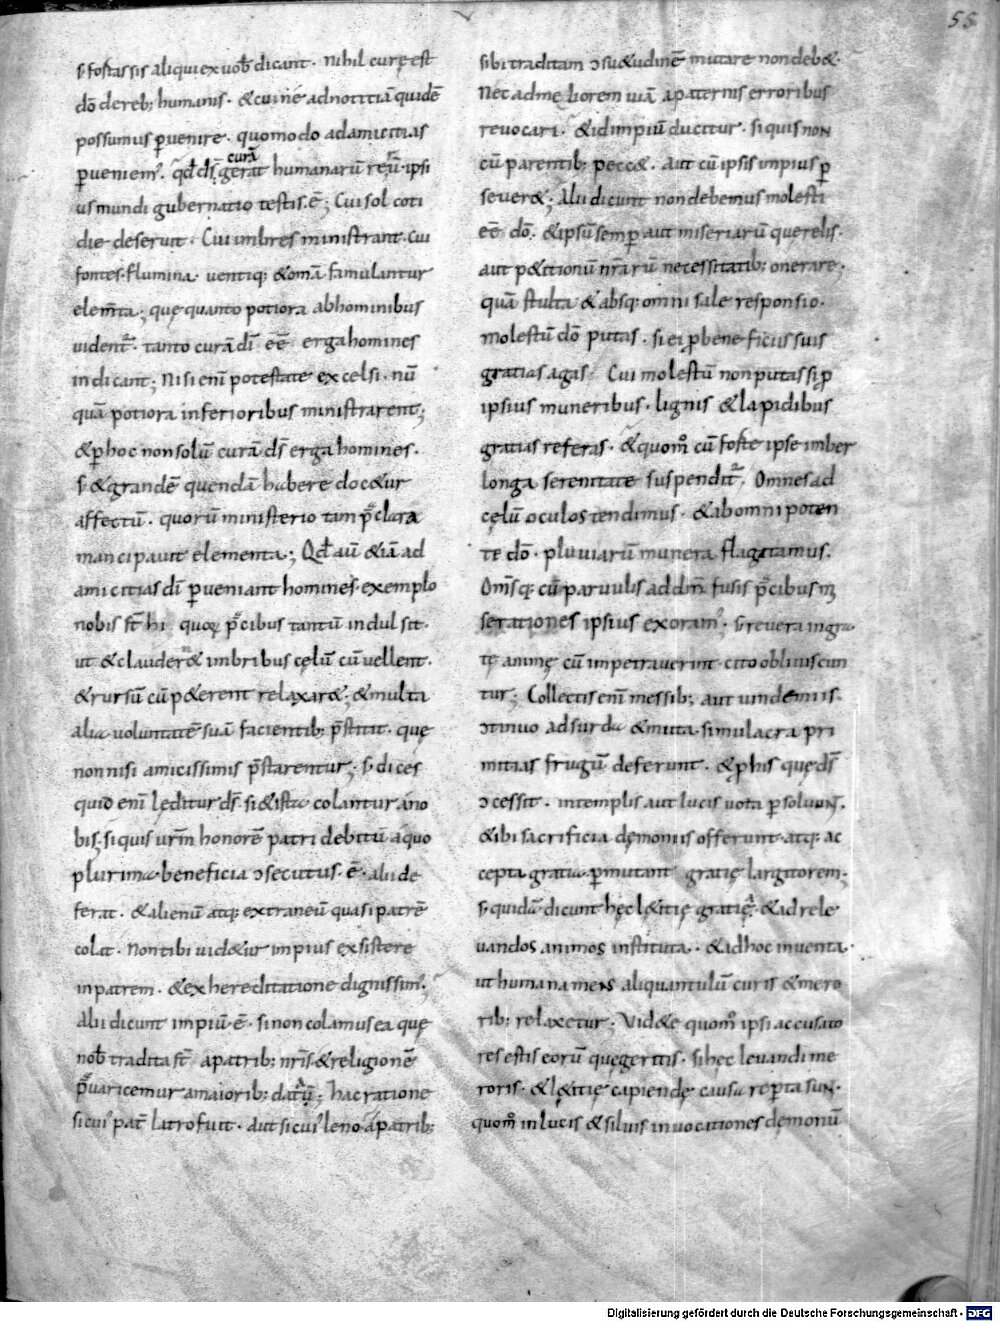 55
s; fortassis aliqui ex uob̄ dicant. nihil curę est
dō de reb; humanis. & cui nē ad notitiā quidē
possumus puenire. quomodo ad amicitias
pueniem'. qd̄ ds̄ curā gerat humanarū rerū. ipsi
us mundi gubernatio testis. ē; Cui sol coti
die deseruit. Cui imbres ministrant. cui
fontes. flumina. uentiq; & om̄a famulantur
elem̄ta; quę quanto potiora ab hominibus
uident'. tanto curā dī eē̄ erga homines
indicant; Nisi enī potestate excelsi. nū
quā potiora inferioribus ministrarent;
& p hoc non solū curā ds̄ erga homines.
s; & grandē quendā habere doc&ur
affectū. quorū ministerio tam p̄clara
mancipauit elementa; Qd̄ aū &iā ad
amicitias dī pueniant homines. exemplo
nobis st̄ hi quoꝝ p̄cibus tantū indulsit.
ut & clauder& imbribus cęlū cū uellent.
& rursū cū p&erent relaxar&; & multa
alia uoluntatē suā facientib; p̄stitit. quę
non nisi amicissimis p̄starentur; s; dices
quid enī lęditur ds̄. si & ista colantur a no
bis. si quis urm̄ honorē patri debitū a quo
plurima beneficia ɔsecutus. ē. alii de
ferat. & alienū atq; extraneū quasi patrē
colat. Non tibi uid&ur impius exsistere
in patrem. & exhereditatione dignissim';
Alii dicunt impiū. ē. si non colamus ea quę
nob̄ tradita st̄ a patrib; nr̄is. & religionē
p̄uaricemur a maiorib; datā; hac ratione
si cui' pat̄ latro fuit. aut si cui' leno a patrib;
sibi traditam ɔsu&udinē mutare non deb&.
Nec ad meliorem uiā a paternis erroribus
reuocari. & id impiū ducitur. si quis non
cū parentib; pecc&. Aut cū ipsis impius p
seuer&; Alii dicunt non debemus molesti
eē̄ dō. & ipsū semp aut miseriarū querelis.
aut p&itionū nr̄arū necessitatib; onerare.
quā stulta & absq; omni sale responsio.
molestū dō putas. si ei p beneficiis suis
gratias agas. Cui molestū non putas si p
ipsius muneribus. lignis & lapidibus
gratias referas. & quom̊ cū forte ipse imber
longa serenitate suspendit'. Omnes ad
cęlū oculos tendimus. & ab omnipoten
te dō. pluuiarū munera flagitamus.
Om̄sq; cū paruulis ad dm̄ fusis p̄cibus mi
serationes ipsius exoram'. s; reuera ingra
tę animę cū impetrauerint. cito obliuiscun
tur; Collectis enī messib; aut uindemiis.
ɔtinuo ad surda & muta simulacra pri
mitias frugū deferunt. & p his quę ds̄
ɔcessit. in templis aut lucis uota psoluunt.
& ibi sacrificia dęmoniis offerunt. atq; ac
cepta gratia pmutant gratię largitorem.
s; quidā dicunt hęc lętitię gratię. & ad rele
uandos animos instituta. & ad hoc inuenta.
ut humana mens aliquantulū curis & mero
rib; relaxetur. Vid&e quom̊ ipsi accusato
res estis eorū quę geritis. si hęc leuandi me
roris. & lętitię capiendę causa repta sunt.
quom̊ in lucis & siluis inuocationes dęmonū
Digitalisierung gefördert durch die Deutsche Forschungsgemeinschaft - DFG